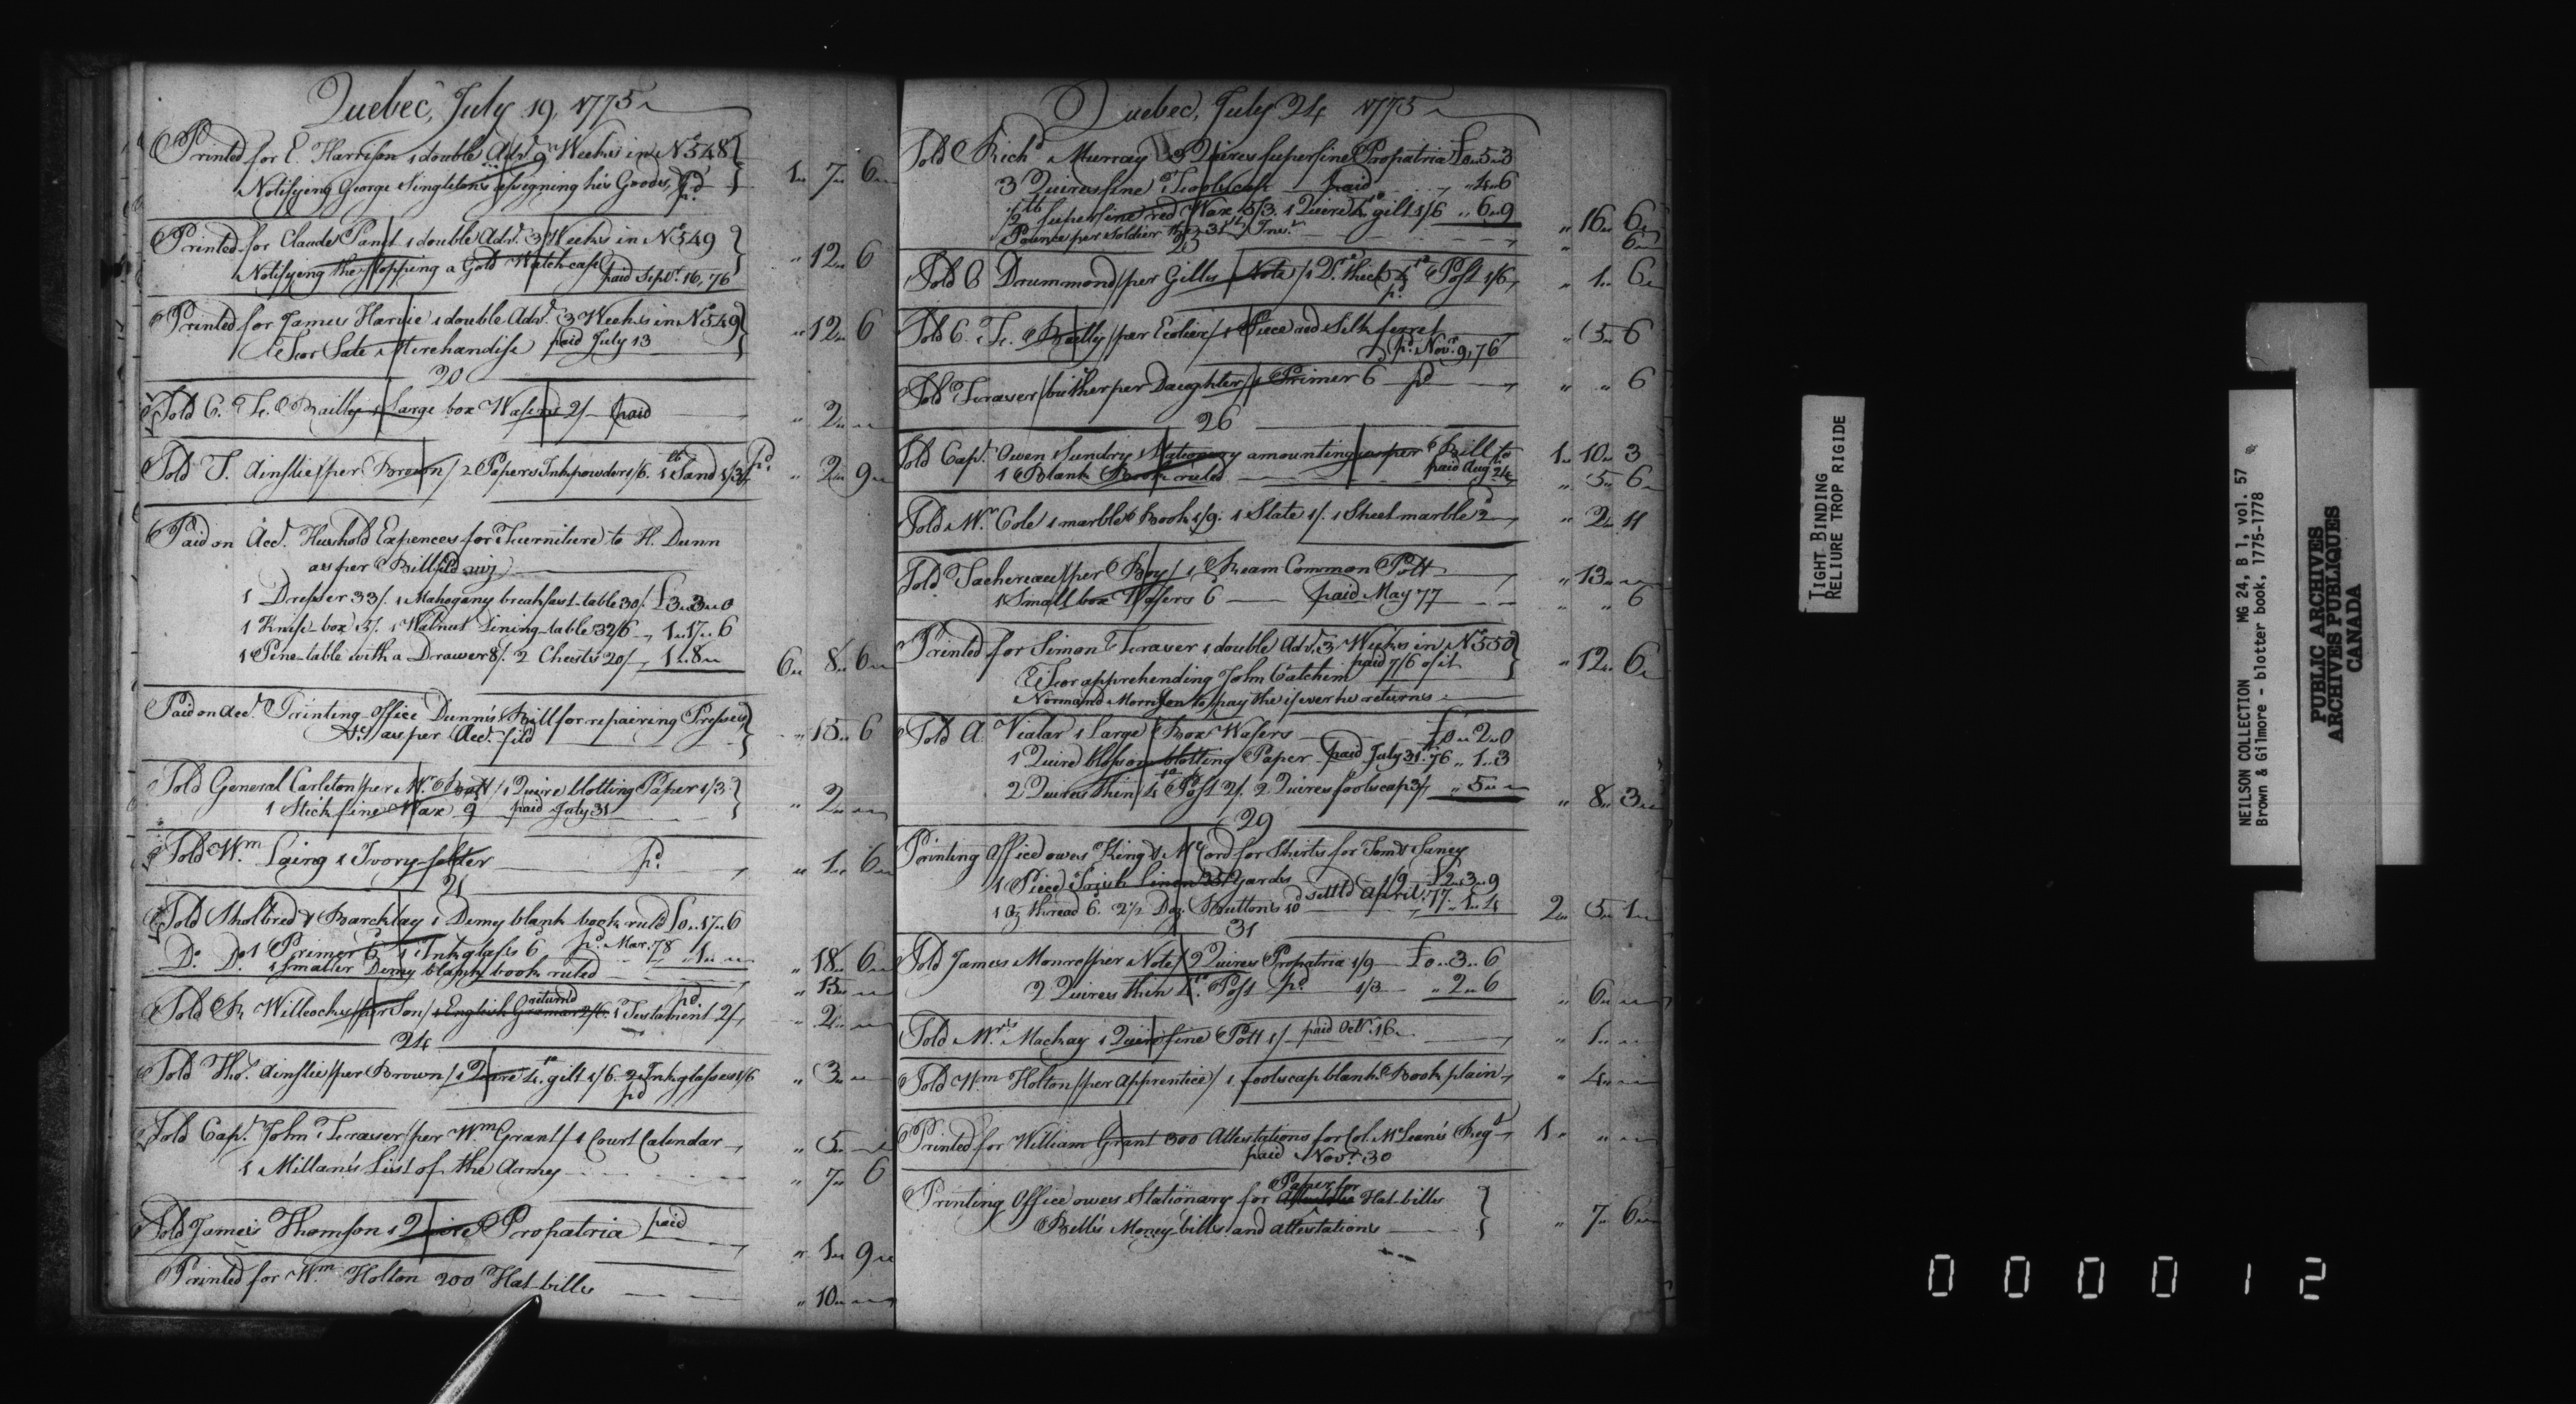 Quebec, July 19, 1775
Printed for E. Harrison 1 double Adv.t 9 Weeks in No 548 }
Notifying George Singleton's assigning his Goods, p.d } 1 " 7 " 6
Printed for Claude Panet 1 double Adv.t 3 Weeks in No 549 }
Notifying the stopping a Gold Watch-case paid Sep.r 16, 76 } " 12 " 6
Printed for James Harvie 1 double Adv.t 3 Weeks in No 549 }
For Sale Merchandise paid July 13 } " 12 " 6
20
Sold C. Le Bailly 1 Large box Wafers 2/- paid " 2 " "
Sold T. Ainslie/per Brown/ 2 Papers Inkpowder 1/6. 1 lb Sand 1/3 p.d " 2 " 9
Paid on Acc.t Hushold Expences for Furniture to H. Dunn
as per Bill fil'd viz
1 Dresser 33/. 1 Mahogany breakfast-table 30/. £3 " 3 " 0
1 Knife-box 5/. 1 Walnut Dining-table 32/6 1 " 17 " 6
1 Pine-table with a Drawer 8/. 2 Chests 20/ 1 " 8 " 6 " 8 " 6
Paid on Acc.t Printing-Office Dunn's Bill for repairing Presses }
&c as per Acc.t fil'd } " 15 " 6
Sold General Carleton/per Mr. / 1 Quire blotting Paper 1/3 }
1 Stick fine Wax 9 paid July 31 } " 2 " "
Sold Wm Laing 1 Ivory-folder p.d " 1 " 6
21
Sold Sholbred & Barcklay 1 Demy blank book rul'd £0 " 17 " 6
Do. Do. 1 Primer 6. 1 Inkglass 6 p.d Mar. 78 " 1 " " " 18 " 6
1 smaller Demy blank book ruled " 15 " "
Sold Willcocks/per Son/ 1 English Gramar 2/6. return'd 1 Testament 2/ p.d " 2 " "
24
Sold Tho.s Ainslie/per Brown/ 1 Quire 4.to gilt 1/6. 2 Inkglasses 1/6 p.d " 3 " "
Sold Cap.t John Fraser/per Wm Grant/ 1 Court Calendar " 5 " "
1 Millan's List of the Army " 7 " 6
Sold James Thomson 1 Quire Propatria paid " 1 " 9
Printed for Wm Holton 200 Hat-bills " 10 " "
Quebec, July 24 1775
Sold Rich.d Murray 3 Quires superfine Propatria £0 " 5 " 3
3 Quires fine Foolscap paid " 4 " 6
½ lb superfine red Wax 5/3. 1 Quire 4.to gilt 1/6 " 6 " 9 " 16 " 6
Pounce per Soldier 31st " 6
25
Sold Drummond/per Gilles Note/ 1 Qr. thick 4.to Post 1/6 p.d " 1 " 6
Sold C. Le Bailly/per Ecolier/ 1 Piece red Silk ferret p.d Nov.r 9, 76 " 5 " 6
Sold Fraser/ per Daughter/ 1 Primer 6 p.d " " 6
26
Sold Cap.t Owen Sundry Stationary amounting as per Bill to 1 " 10 " 3
1 Blank Book ruled paid Aug 24 " 5 " 6
Sold Mr. Cole 1 marble Book 1/9. 1 Slate 1/. 1 Sheet marble 2 " 2 " 11
Sold Tachereau/per Boy/ 1 Ream Common Pott " 13 " "
1 Small box Wafers 6 paid May 77 " " 6
Printed for Simon Fraser 1 double Adv.t 3 Weeks in No 550 }
For apprehending John Catchem paid 7/6 of it } " 12 " 6
Normand Morrison to pay the if ever he returns
Sold A. Vialar 1 Large Box Wafers £0 " 2 " 0
1 Quire blossom blotting Paper paid July 31. 76 " 1 " 3
2 Quires thin 4.to Post 2/. 2 Quires foolscap 3/ " 5 " " " 8 " 3
29
Printing Office owes King & McCord for Shirts for Tom & Saney
1 Piece Irish Linen 25 Yards 1/9 £2 " 3 " 9
1 Oz thread 6. 2½ Doz. Buttons 10 settl'd April. 77 " 1 " 4 2 " 5 " 1
31
Sold James Monro/per Note/ 2 Quires Propatria 1/9 £0 " 3 " 6
2 Quires thin 4.to Post p.d 1/3 " 2 " 6 " 6 " "
Sold Mrs Mackay 1 Quire fine Pott 1/ paid Oct.r 16 " 1 " "
Sold Wm Holton/per Apprentice/ 1 foolscap blank Book plain " 4 " "
Printed for William Grant 300 Attestations for Col. McLean's Reg.t 1 " " "
paid Nov.r 30
Printing Office owes Stationary for Paper for Hat-bills }
Bell's Money-bills and attestations } " 7 " 6
TIGHT BINDING
RELIURE TROP RIGIDE
NEILSON COLLECTION MG 24, B 1, vol. 57
Brown & Gilmore - blotter book, 1775-1778
PUBLIC ARCHIVES
ARCHIVES PUBLIQUES
CANADA
000012